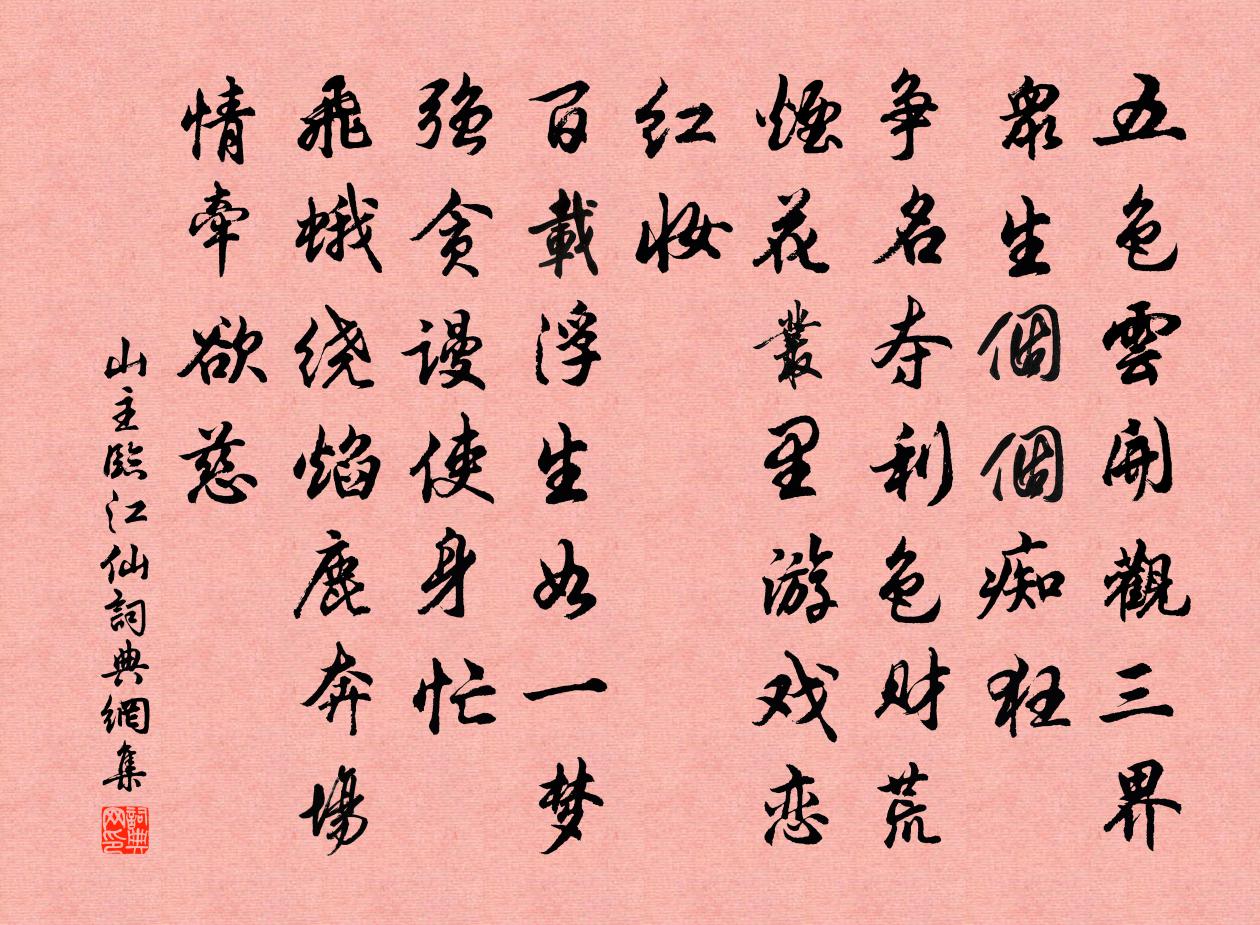 五色雲開觀三界
衆生個個痴狂
争名夺利色财荒
煙花叢里游戏恋
红妝
百載浮生如一梦
強贪谩使身忙
飛蛾绕焰鹿奔場
情牽欲慈
山主臨江仙詞典網集
詞典网印